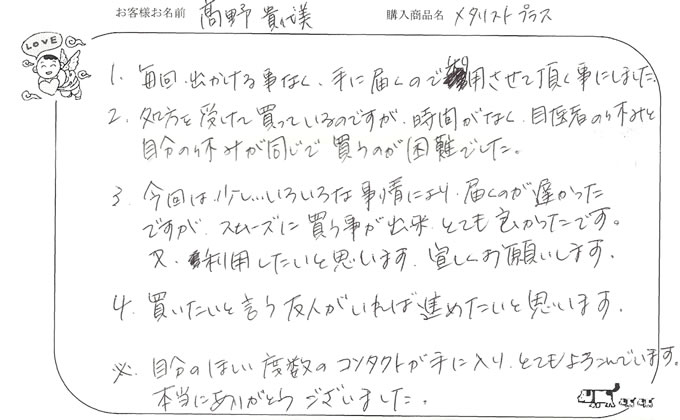 お客様お名前 髙野 貴代美 購入商品名 メタリストプラス
LOVE
1. 毎回、出かける事なく、手に届くので利用させて頂く事にしました。
2. 処方を受けて買っているのですが、時間がなく、目医者の休みと
自分の休みが同じで買うのが困難でした。
3. 今回は少し…いろいろな事情により、届くのが遅かった
ですが、スムーズに買う事が出来、とても良かったです。
又、利用したいと思います。宜しくお願いします。
4. 買いたいと言う友人がいれば進めたいと思います。
※. 自分のほしい度数のコンタクトが手に入り、とてもよろこんでいます。
本当にありがとうございました。